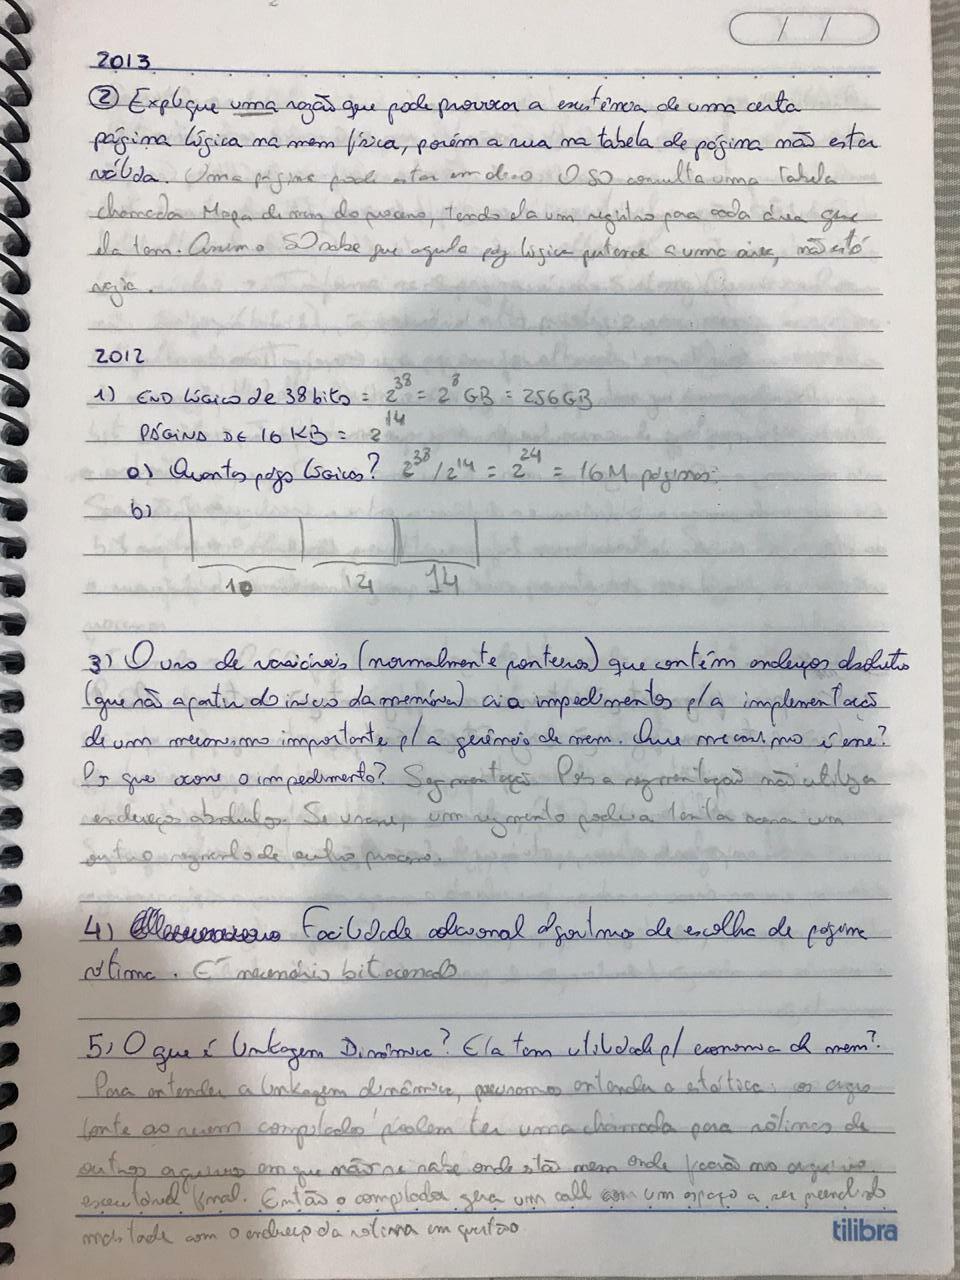 / /
2013
② Explique uma razão que pode provocar a existência de uma certa
página lógica na mem física, porém a sua na tabela de página não estar
válida. Uma página pode estar em disco O SO consulta uma tabela
chamada Mapa de mem do processo, tendo ela um registro para cada área que
ela tem. Assim o SO sabe que aquela pág lógica pertence a uma área, não está
vazia.
2012
1) END lógico de 38 bits = 2^38 = 2^8 GB = 256GB
PÁGINA DE 16 KB = 2^14
a) Quantas págs lógicas? 2^38 / 2^14 = 2^24 = 16M páginas.
b)
10 14 14
3) O uso de variáveis (normalmente ponteiros) que contém endereços absolutos
(que são a partir do início da memória) cria impedimentos p/ a implementação
de um mecanismo importante p/ a gerência de mem. Que mecanismo é esse?
Por que ocorre o impedimento? Segmentação Pois a segmentação não utiliza
endereços absolutos. Se usasse, um segmento poderia tentar um
outro segmento de outro processo.
4) Facilidade adicional algoritmos de escolha de página
vítima. É necessário bit acessado
5) O que é linkagem Dinâmica? Ela tem utilidade p/ economia de mem?
Para entender a linkagem dinâmica, precisamos entender a estática: os arqs
fonte ao serem compilados podem ter uma chamada para rotinas de
outros arquivos em que não se sabe onde estão nem onde ficarão no arquivo
executável final. Então o compilador gera um call com um espaço a ser preenchido
mais tarde com o endereço da rotina em questão.
tilibra